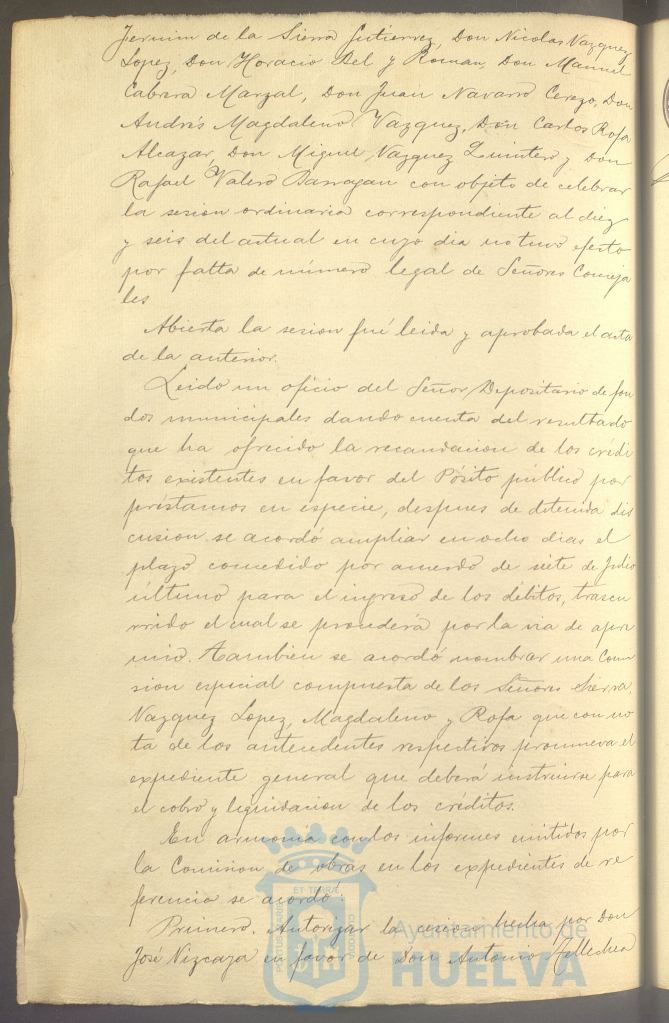 Jermin de la Sierra Gutierrez, Don Nicolas Vazquez
Lopez, Don Horacio Bel y Roman, Don Manuel
Cabrera Marzal, Don Juan Navarro Cerezo, Don
Andrés Magdaleno Vazquez, Don Carlos Rofa
Alcazar, Don Miguel Vazquez Quintero y Don
Rafael Valero Barragan con objeto de celebrar
la sesion ordinaria correspondiente al diez
y seis del actual en cuyo dia no tuvo efecto
por falta de número legal de Señores Conceja
les
Abierta la sesion fué leida y aprobada el acta
de la anterior.
Leido un oficio del Señor Depositario de fon
dos municipales dando cuenta del resultado
que ha ofrecido la recaudacion de los crédi
tos existentes en favor del Pósito público por
préstamos en especie, despues de detenida dis
cusion se acordó ampliar en ocho dias el
plazo concedido por acuerdo de siete de Julio
último para el ingreso de los débitos, trascu
rrido el cual se procederá por la via de apre
mio. Tambien se acordó nombrar una Comi
sion especial compuesta de los Señores Sierra,
Vazquez Lopez, Magdaleno y Rofa que con no
ta de los antecedentes respectivos promueva el
expediente general que deberá instruirse para
el cobro y liquidacion de los créditos.
En armonia con los informes emitidos por
la Comision de obras en los expedientes de re
ferencia se acordó:
Primero. Autorizar la cesion hecha por Don
José Vizcaya en favor de Don Antonio
Ayuntamiento de
HUELVA